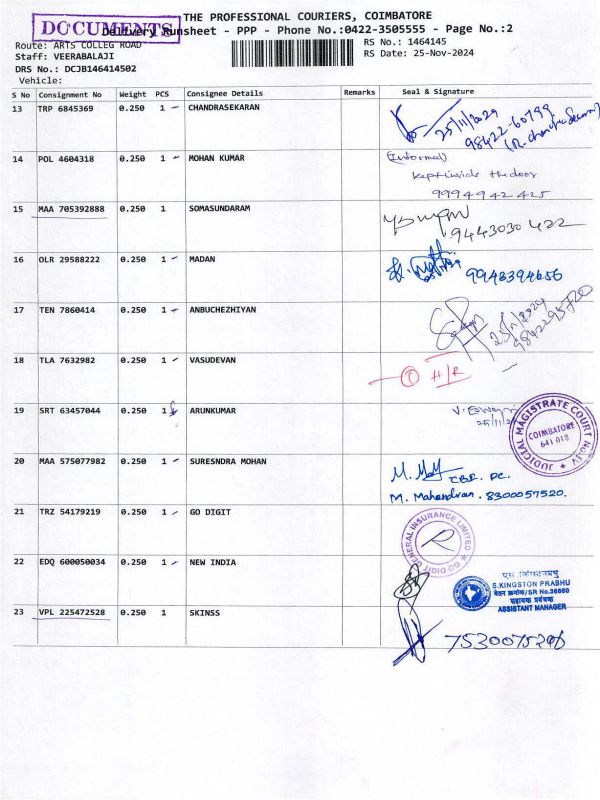 THE PROFESSIONAL COURIERS, COIMBATORE
DOCUMENTS
Delivery Runsheet - PPP - Phone No.:0422-3505555 - Page No.:2
Route: ARTS COLLEG ROAD
RS No.: 1464145
Staff: VEERABALAJI
RS Date: 25-Nov-2024
DRS No.: DCJB146414502
Vehicle:
S No Consignment No Weight PCS Consignee Details Remarks Seal & Signature
13 TRP 6845369 0.250 1 CHANDRASEKARAN
25/11/2024
98422-60799
14 POL 4604318 0.250 1 MOHAN KUMAR
(Informal)
kept inside the door
9994942425
15 MAA 705392888 0.250 1 SOMASUNDARAM
9443030422
16 OLR 29588222 0.250 1 MADAN
9943394656
17 TEN 7860414 0.250 1 ANBUCHEZHIYAN
25/11/2024
18 TLA 7632982 0.250 1 VASUDEVAN
① H/R
19 SRT 63457044 0.250 1 ARUNKUMAR
JUDICIAL MAGISTRATE COURT No.IV
COIMBATORE
641 018
20 MAA 575077982 0.250 1 SURESNDRA MOHAN
CBE. DC.
M. Mahendran. 8300057520.
21 TRZ 54179219 0.250 1 GO DIGIT
GO DIGIT GENERAL INSURANCE LIMITED
22 EDQ 600050034 0.250 1 NEW INDIA
S.KINGSTON PRABHU
वेतन क्रमांक/SR No.36860
सहायक प्रबंधक
ASSISTANT MANAGER
23 VPL 225472528 0.250 1 SKINSS